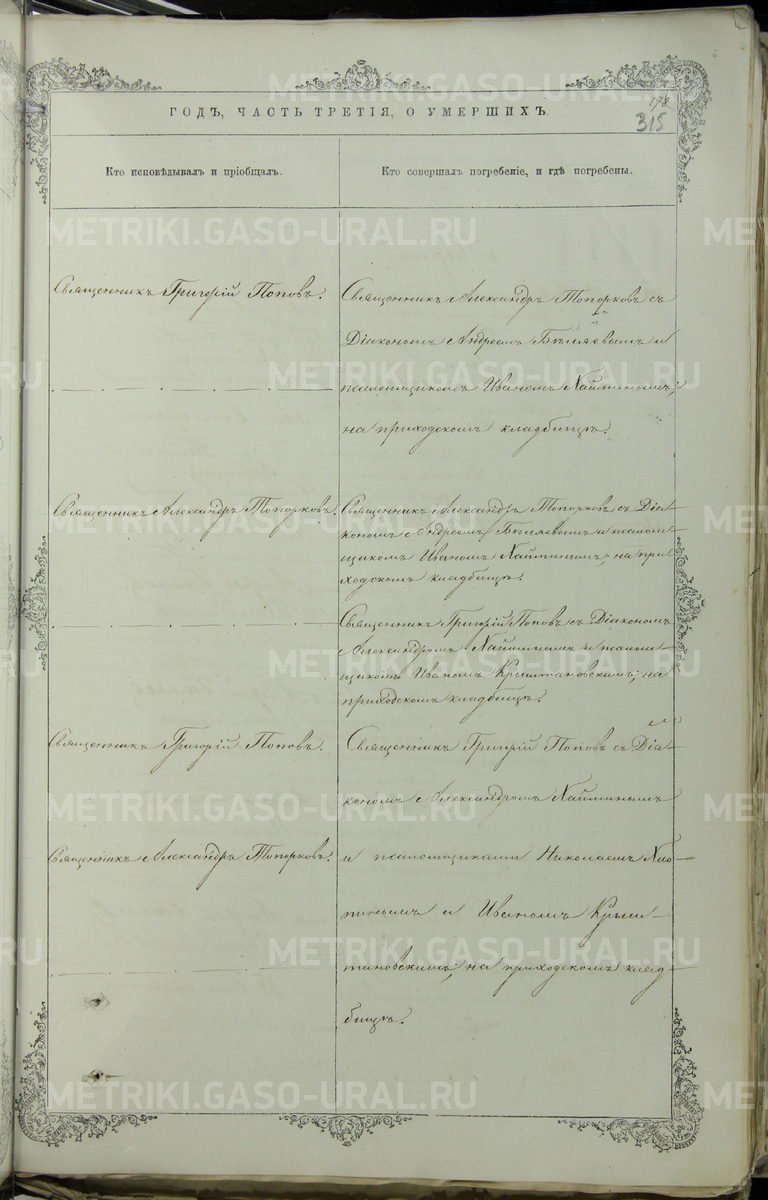 178
315
ГОДЪ, ЧАСТЬ ТРЕТІЯ, О УМЕРШИХЪ.
Кто исповѣдывалъ и пріобщалъ.
Кто совершалъ погребеніе, и гдѣ погребены.
Священникъ Григорій Поповъ.
Священникъ Александръ Топорковъ съ
Діакономъ Андреемъ Бѣляевымъ и
псаломщикомъ Иваномъ Найминымъ;
на приходскомъ кладбищѣ.
Священникъ Александръ Топорковъ.
Священникъ Александръ Топорковъ съ Діа-
кономъ Андреемъ Бѣляевымъ и псалом-
щикомъ Иваномъ Найминымъ; на при-
ходскомъ кладбищѣ.
Священникъ Григорій Поповъ съ Діакономъ
Александромъ Найминымъ и псалом-
щикомъ Иваномъ Крыштановскимъ; на
приходскомъ кладбищѣ.
Священникъ Григорій Поповъ.
Священникъ Григорій Поповъ съ Діа-
кономъ Александромъ Найминымъ
Священникъ Александръ Топорковъ.
и псаломщиками Николаемъ
и Иваномъ Крыш-
тановскимъ; на приходскомъ клад-
бищѣ.
METRIKI.GASO-URAL.RU